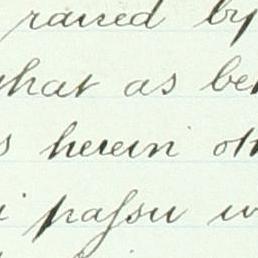 raised by
what as be
s herein oth
i passu w